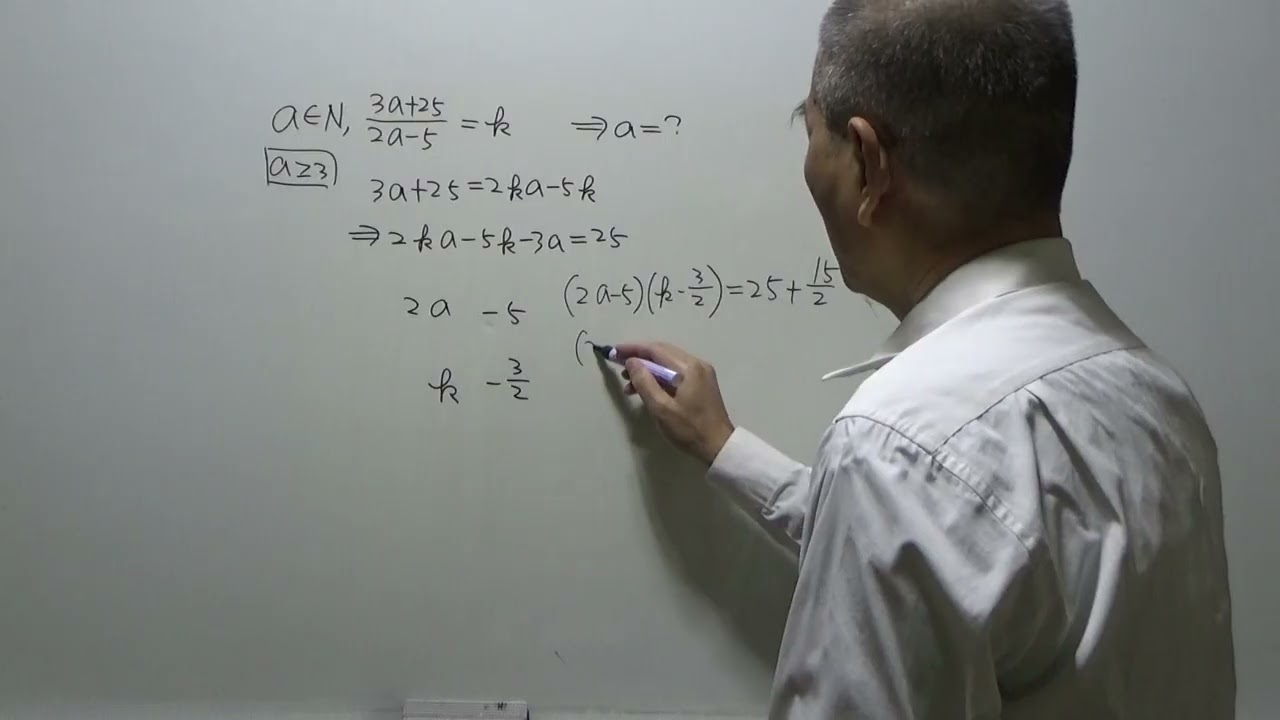 a∈N, (3a+25)/(2a-5) = k ⇒ a = ?
a≥3
3a+25=2ka-5k
⇒2ka-5k-3a=25
(2a-5)(k-3/2)=25+15/2
2a -5
k -3/2
(